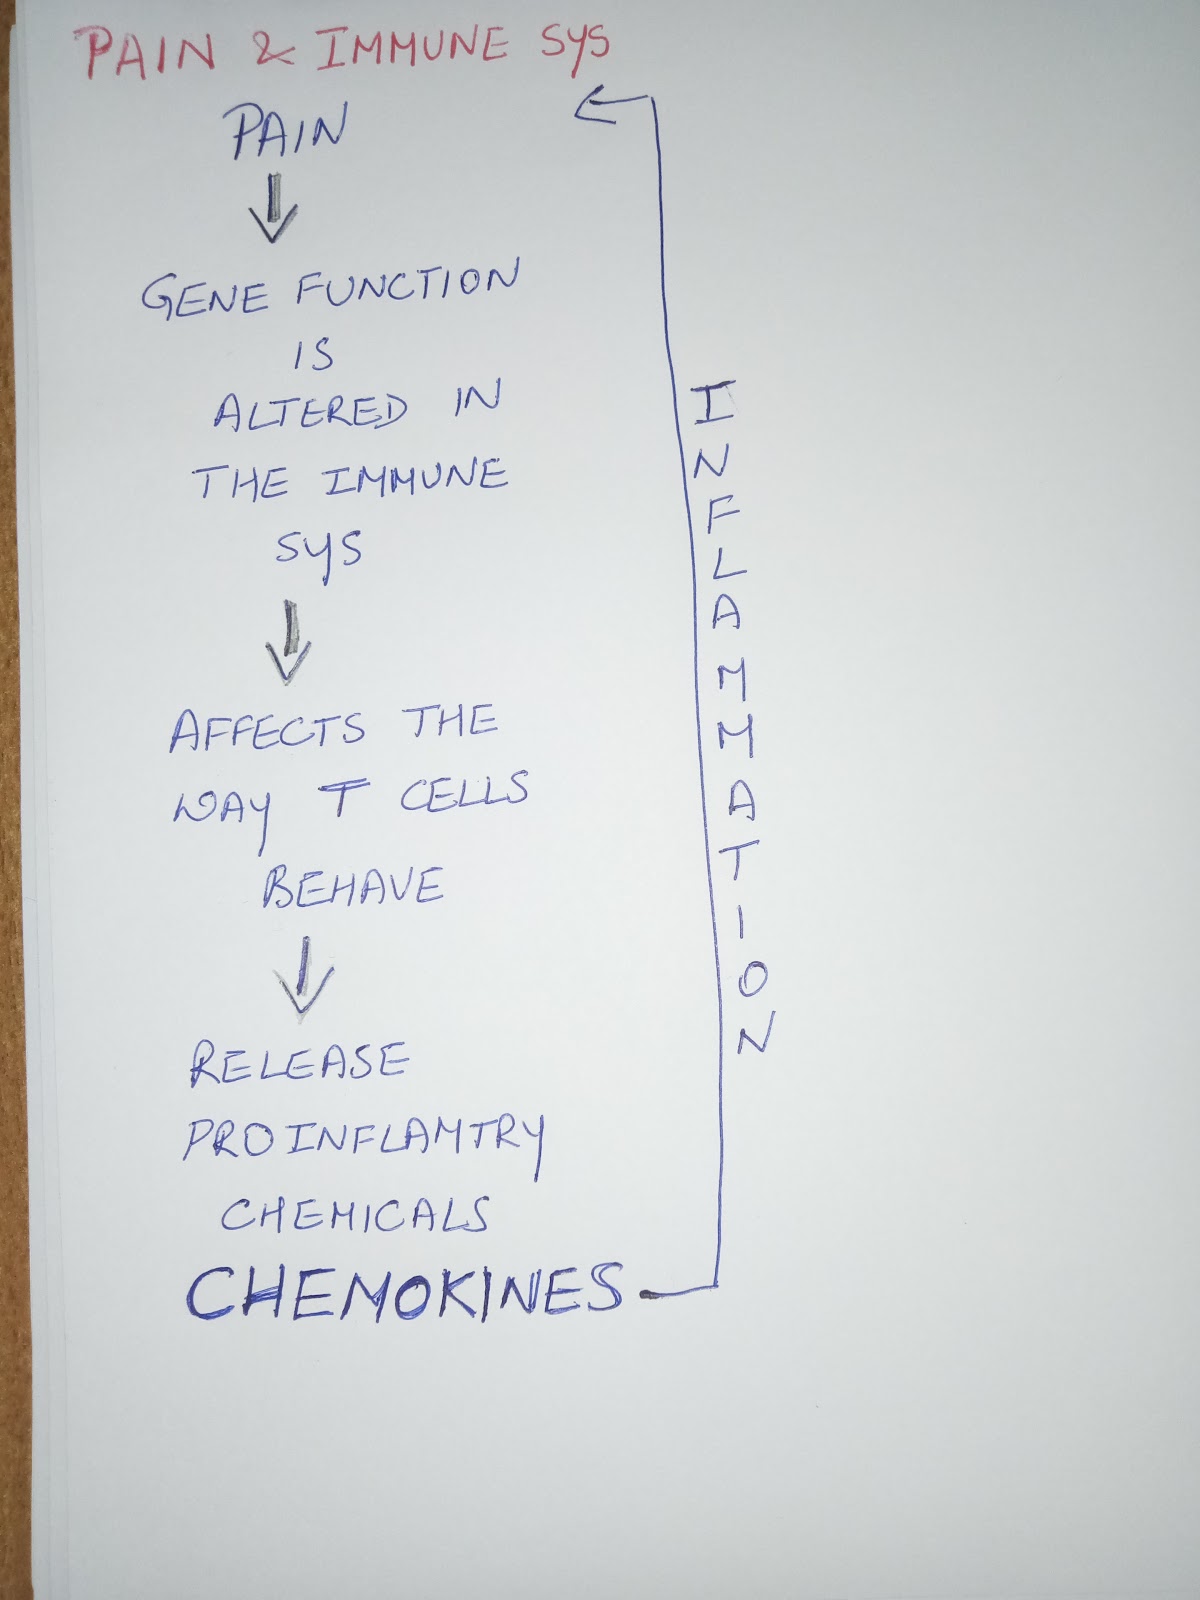 PAIN & IMMUNE SYS
PAIN
GENE FUNCTION
IS
ALTERED IN
THE IMMUNE
SYS
AFFECTS THE
WAY T CELLS
BEHAVE
RELEASE
PROINFLAMTRY
CHEMICALS
CHEMOKINES
INFLAMMATION